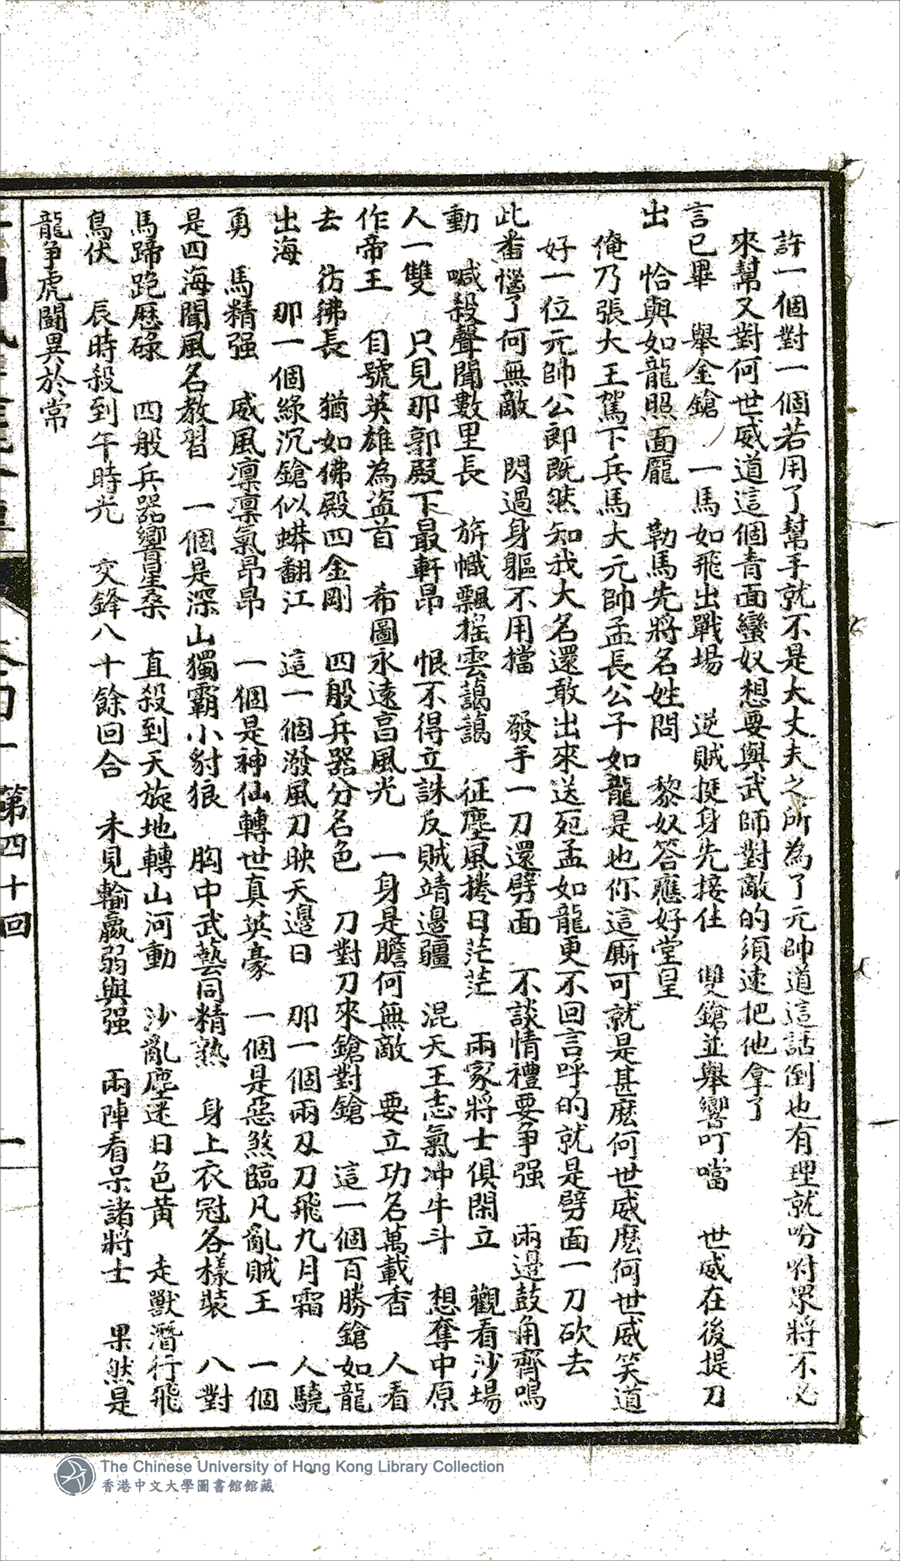 許一個對一個若用了幫手就不是大丈夫之所為了元帥道這話倒也有理就吩咐眾將不必
來幫又對何世威道這個青面蠻奴想要與武師對敵的須速把他拿了
言已畢　舉金鎗　一馬如飛出戰場　逆賊挺身先接住　雙鎗並舉響叮噹　世威在後提刀
出　恰與如龍照面龐　勒馬先將名姓問　黎奴答應好堂皇
俺乃張大王駕下兵馬大元帥孟長公子如龍是也你這厮可就是甚麽何世威麽何世威笑道
好一位元帥公郎既然知我大名還敢出來送死孟如龍更不回言呼的就是劈面一刀砍去
此番惱了何無敵　閃過身軀不用擋　發手一刀還劈面　不談情禮要爭强　兩邊鼓角齊鳴
動　喊殺聲聞數里長　旂幟飄揺雲藹藹　征塵風捲日茫茫　兩家將士俱閑立　觀看沙場
人一雙　只見那郭殿下最軒昂　恨不得立誅反賊靖邊疆　混天王志氣冲牛斗　想奪中原
作帝王　自號英雄為盜首　希圖永遠高風光　一身是膽何無敵　要立功名萬載香　人看
去　彷彿長　猶如佛殿四金剛　四般兵器分名色　刀對刀來鎗對鎗　這一個百勝鎗如龍
出海　那一個綠沉鎗似蟒翻江　這一個潑風刀映天邊日　那一個兩刄刀飛九月霜　人驍
勇　馬精强　威風凛凛氣昂昂　一個是神仙轉世真英豪　一個是惡煞臨凡亂賊王　一個
是四海聞風名教習　一個是深山獨霸小豺狼　胸中武藝同精熟　身上衣冠各樣裝　八對
馬蹄跑歷碌　四般兵器響星桑　直殺到天旋地轉山河動　沙亂塵迷日色黄　走獸潛行飛
鳥伏　辰時殺到午時光　交鋒八十餘回合　未見輸贏弱與强　兩陣看呆諸將士　果然是
龍爭虎鬪異於常
第四十回
一
The Chinese University of Hong Kong Library Collection
香港中文大學圖書館館藏